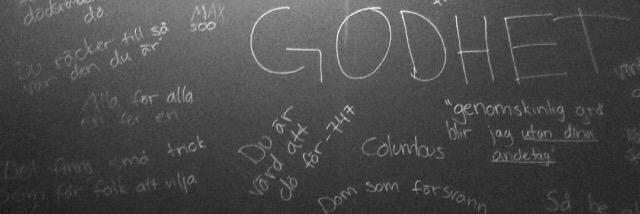 GODHET
MAX
500
Du räcker till så
var den du är
Alla för alla
en för en
Det finns små trick
som får folk att vilja
Du är
värd att
dö för -747
Columbus
"genomskinlig grå
blir jag utan dina
andetag"
Dom som försvann
Så